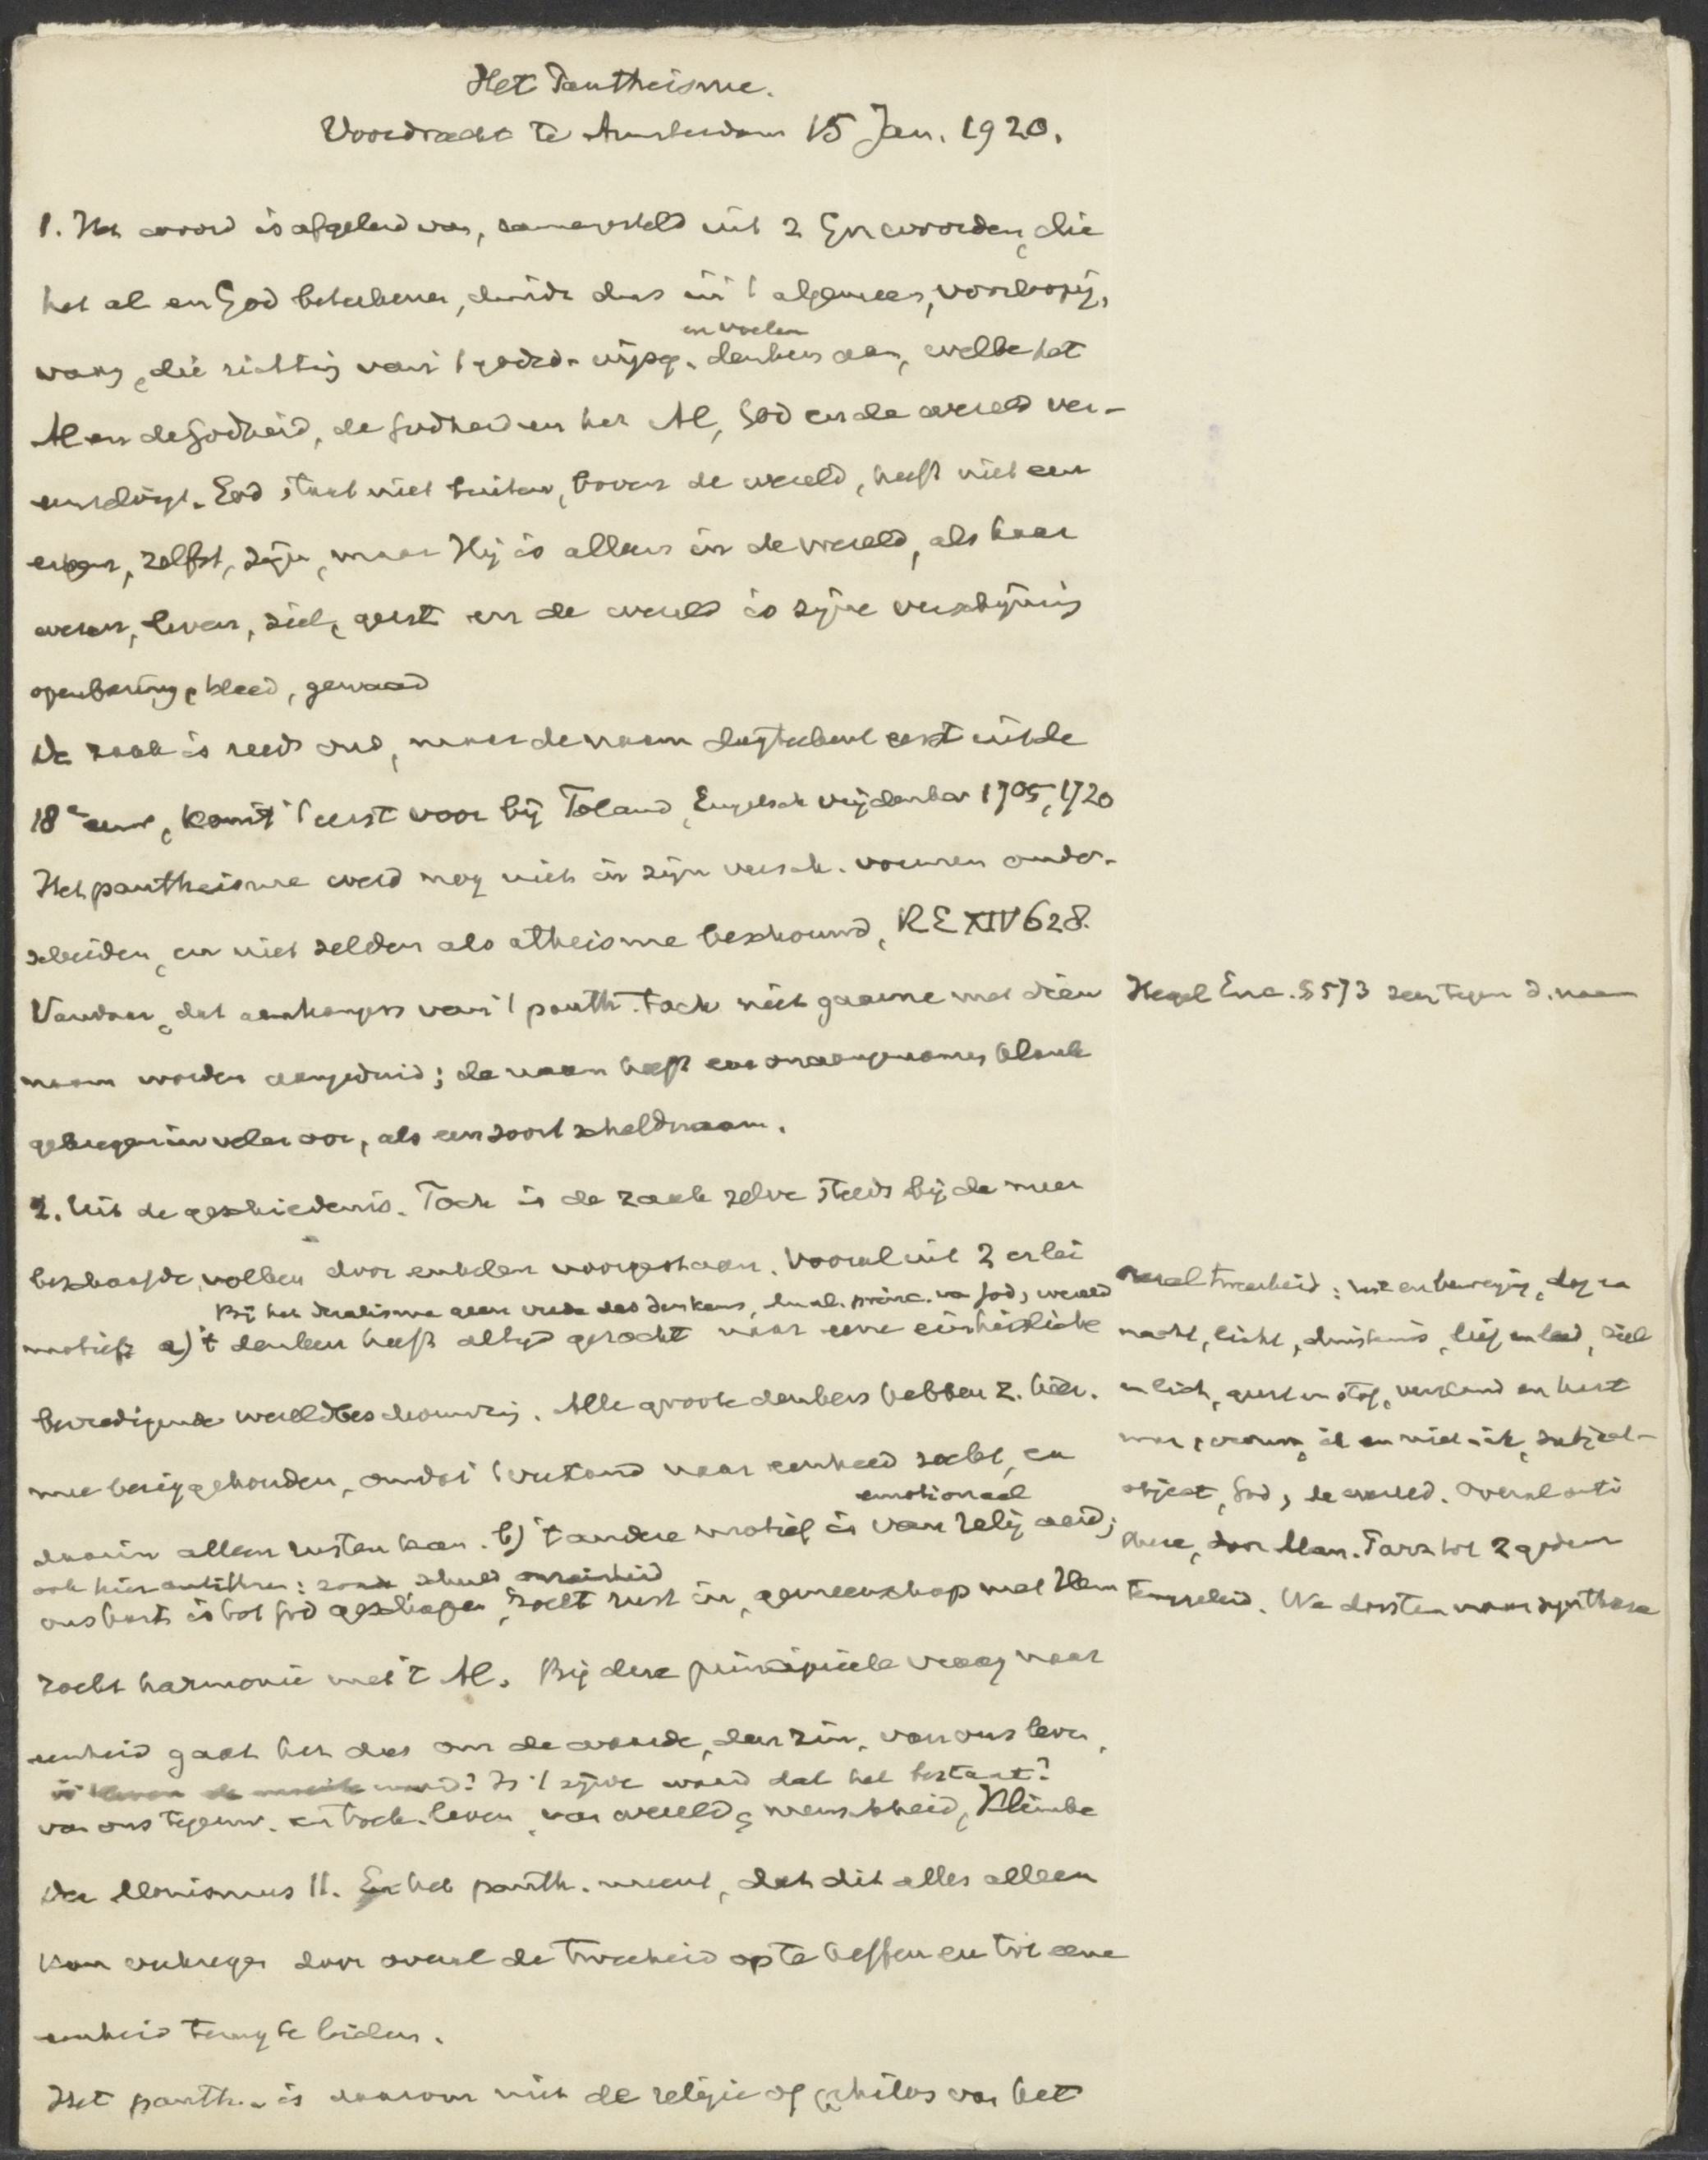 Het Pantheisme.
Voordracht te Amsterdam 15 Jan. 1920.
1. Het woord is afgeleid van, samengesteld uit 2 Gr. woorden, die
het al en God beteekenen, duidt dus in 't algemeen, voorloopig,
vaag, die richting van 't godsd. wijsg. denken aan, welke het
en voelen
Al en de Godheid, de Godheid en het Al, God en de wereld ver-
eenzelvigt. God staat niet buiten, boven de wereld, heeft niet een
eigen, zelfst, zijn, maar Hij is alleen in de wereld, als haar
wezen, leven, ziel, geest en de wereld is zijne verschijning
openbaring, kleed, gewaad
De zaak is reeds oud, maar de naam dagteekent eerst uit de
18e eeuw, komt 't eerst voor bij Toland, Engelsch vrijdenker 1705, 1720
Het pantheisme werd nog niet in zijn versch. vormen onder-
scheiden, en niet zelden als atheisme beschouwd, RE XIV 628.
Vandaar, dat aanhangers van 't panth. toch niet gaarne met dien
naam worden aangeduid; de naam heeft een onaangenamen klank
gekregen in veler oor, als een soort scheldnaam.
Hegel Enc. § 573 zeer tegen d. naam
2. Uit de geschiedenis. Toch is de zaak zelve steeds bij de meer
beschaafde volken door enkelen voorgestaan. Vooral uit 2 erlei
Bij het dualisme geen vrede des denkens, princ. van God, wereld
motief a) 't denken heeft altijd gezocht naar eene eenheidlicke
bevredigende wereldbeschouwing. Alle groote denkers hebben z. hier.
mee bezig gehouden, omdat 't verstand naar eenheid zoekt, en
daarin alleen rusten kan. b) 't andere motief is van relig aard;
emotioneel
ook hier antithese: zonde schuld onreinheid
ons hart is tot God geschapen, zoekt rust in, gemeenschap met Hem
zoekt harmonie met 't Al. Bij deze principieele vraag naar
eenheid gaat het dus om de waarde, den zin, van ons leven,
waard? Is 't zijne waard dat het bestaat?
van ons tegenw. en toek. leven, van wereld, menschheid, Klimke
Der Monismus 11. En het panth. meent, dat dit alles alleen
kan verkregen door overal de tweeheid op te heffen en tot eene
eenheid terug te leiden.
Het panth. is daarom niet de religie of philos van het
overal tweeheid: rust en beweging, dag en
nacht, licht, duisternis, lief en leed, ziel
en lich, geest en stof, verstand en hart
man, vrouw, ik en niet-ik, subject-
object, God, de wereld. Overal anti
these, door Man. Parz tot 2 goden
herleid. We dorsten naar synthese